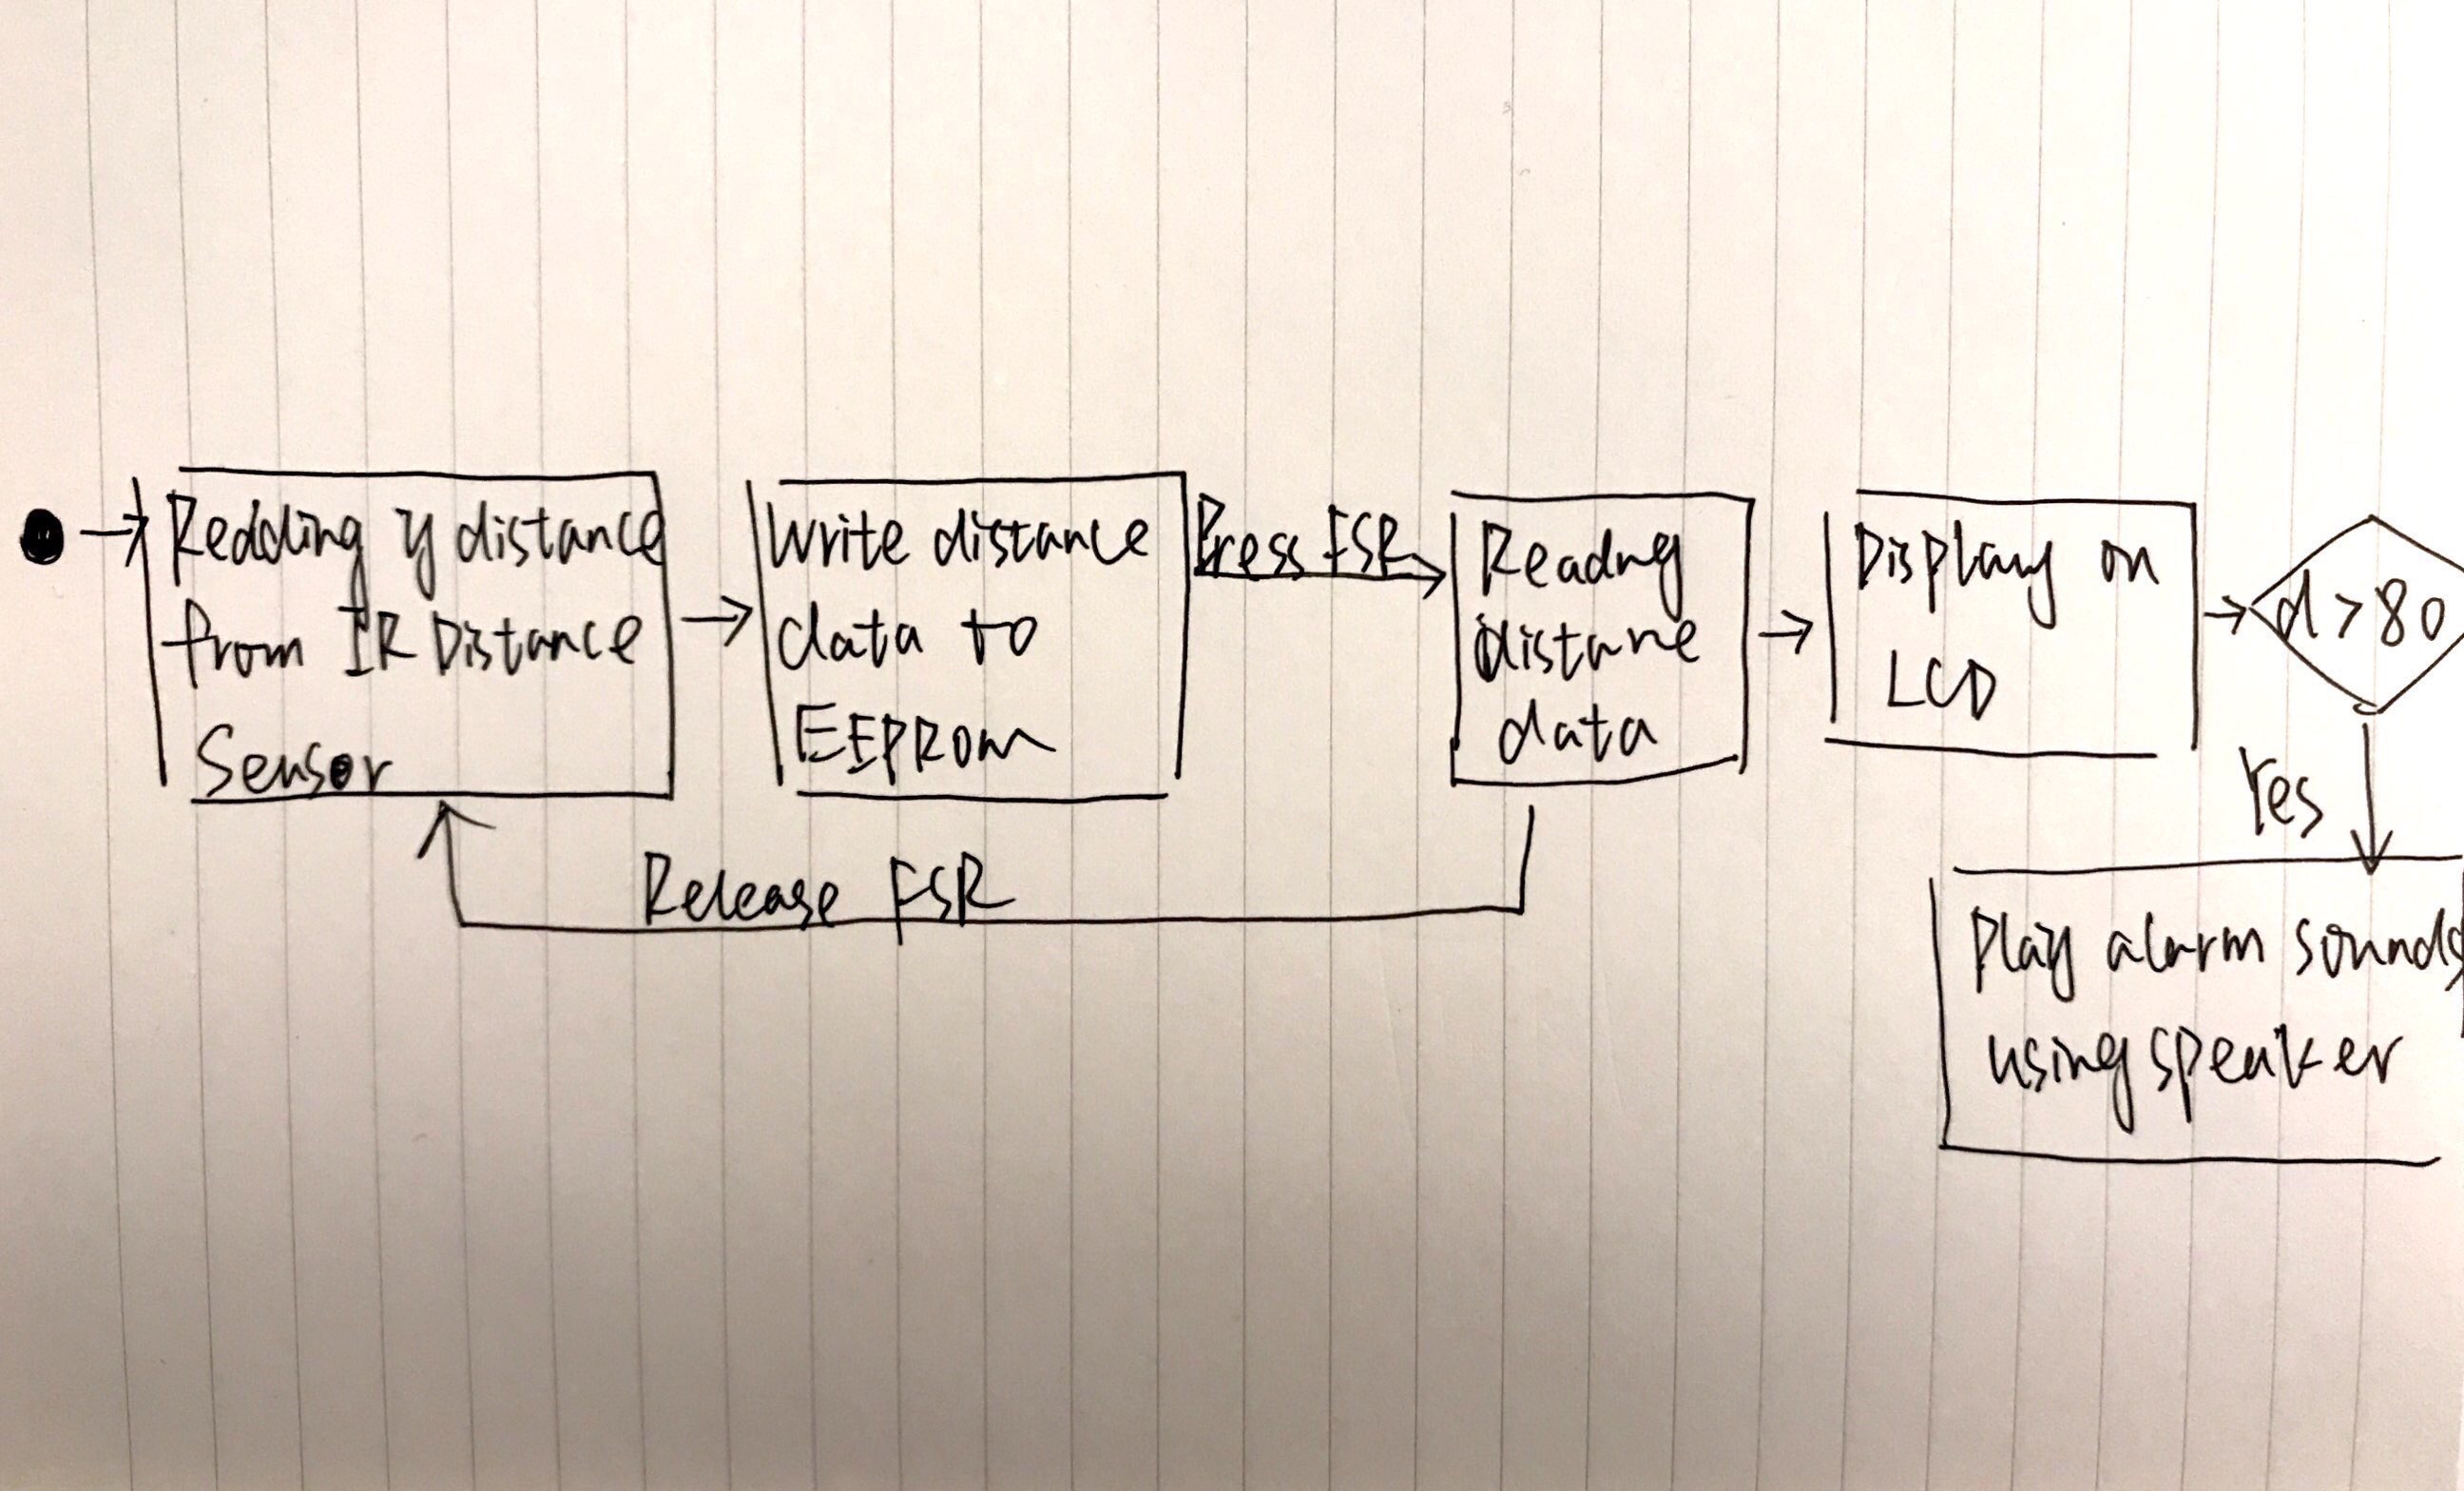 Redding y distance
from IR Distance
Sensor
Write distance
data to
EEPROM
Press FSR
Readng
distane
data
Display on
LCD
d > 80
Yes
Play alarm sounds
using speaker
Release FSR